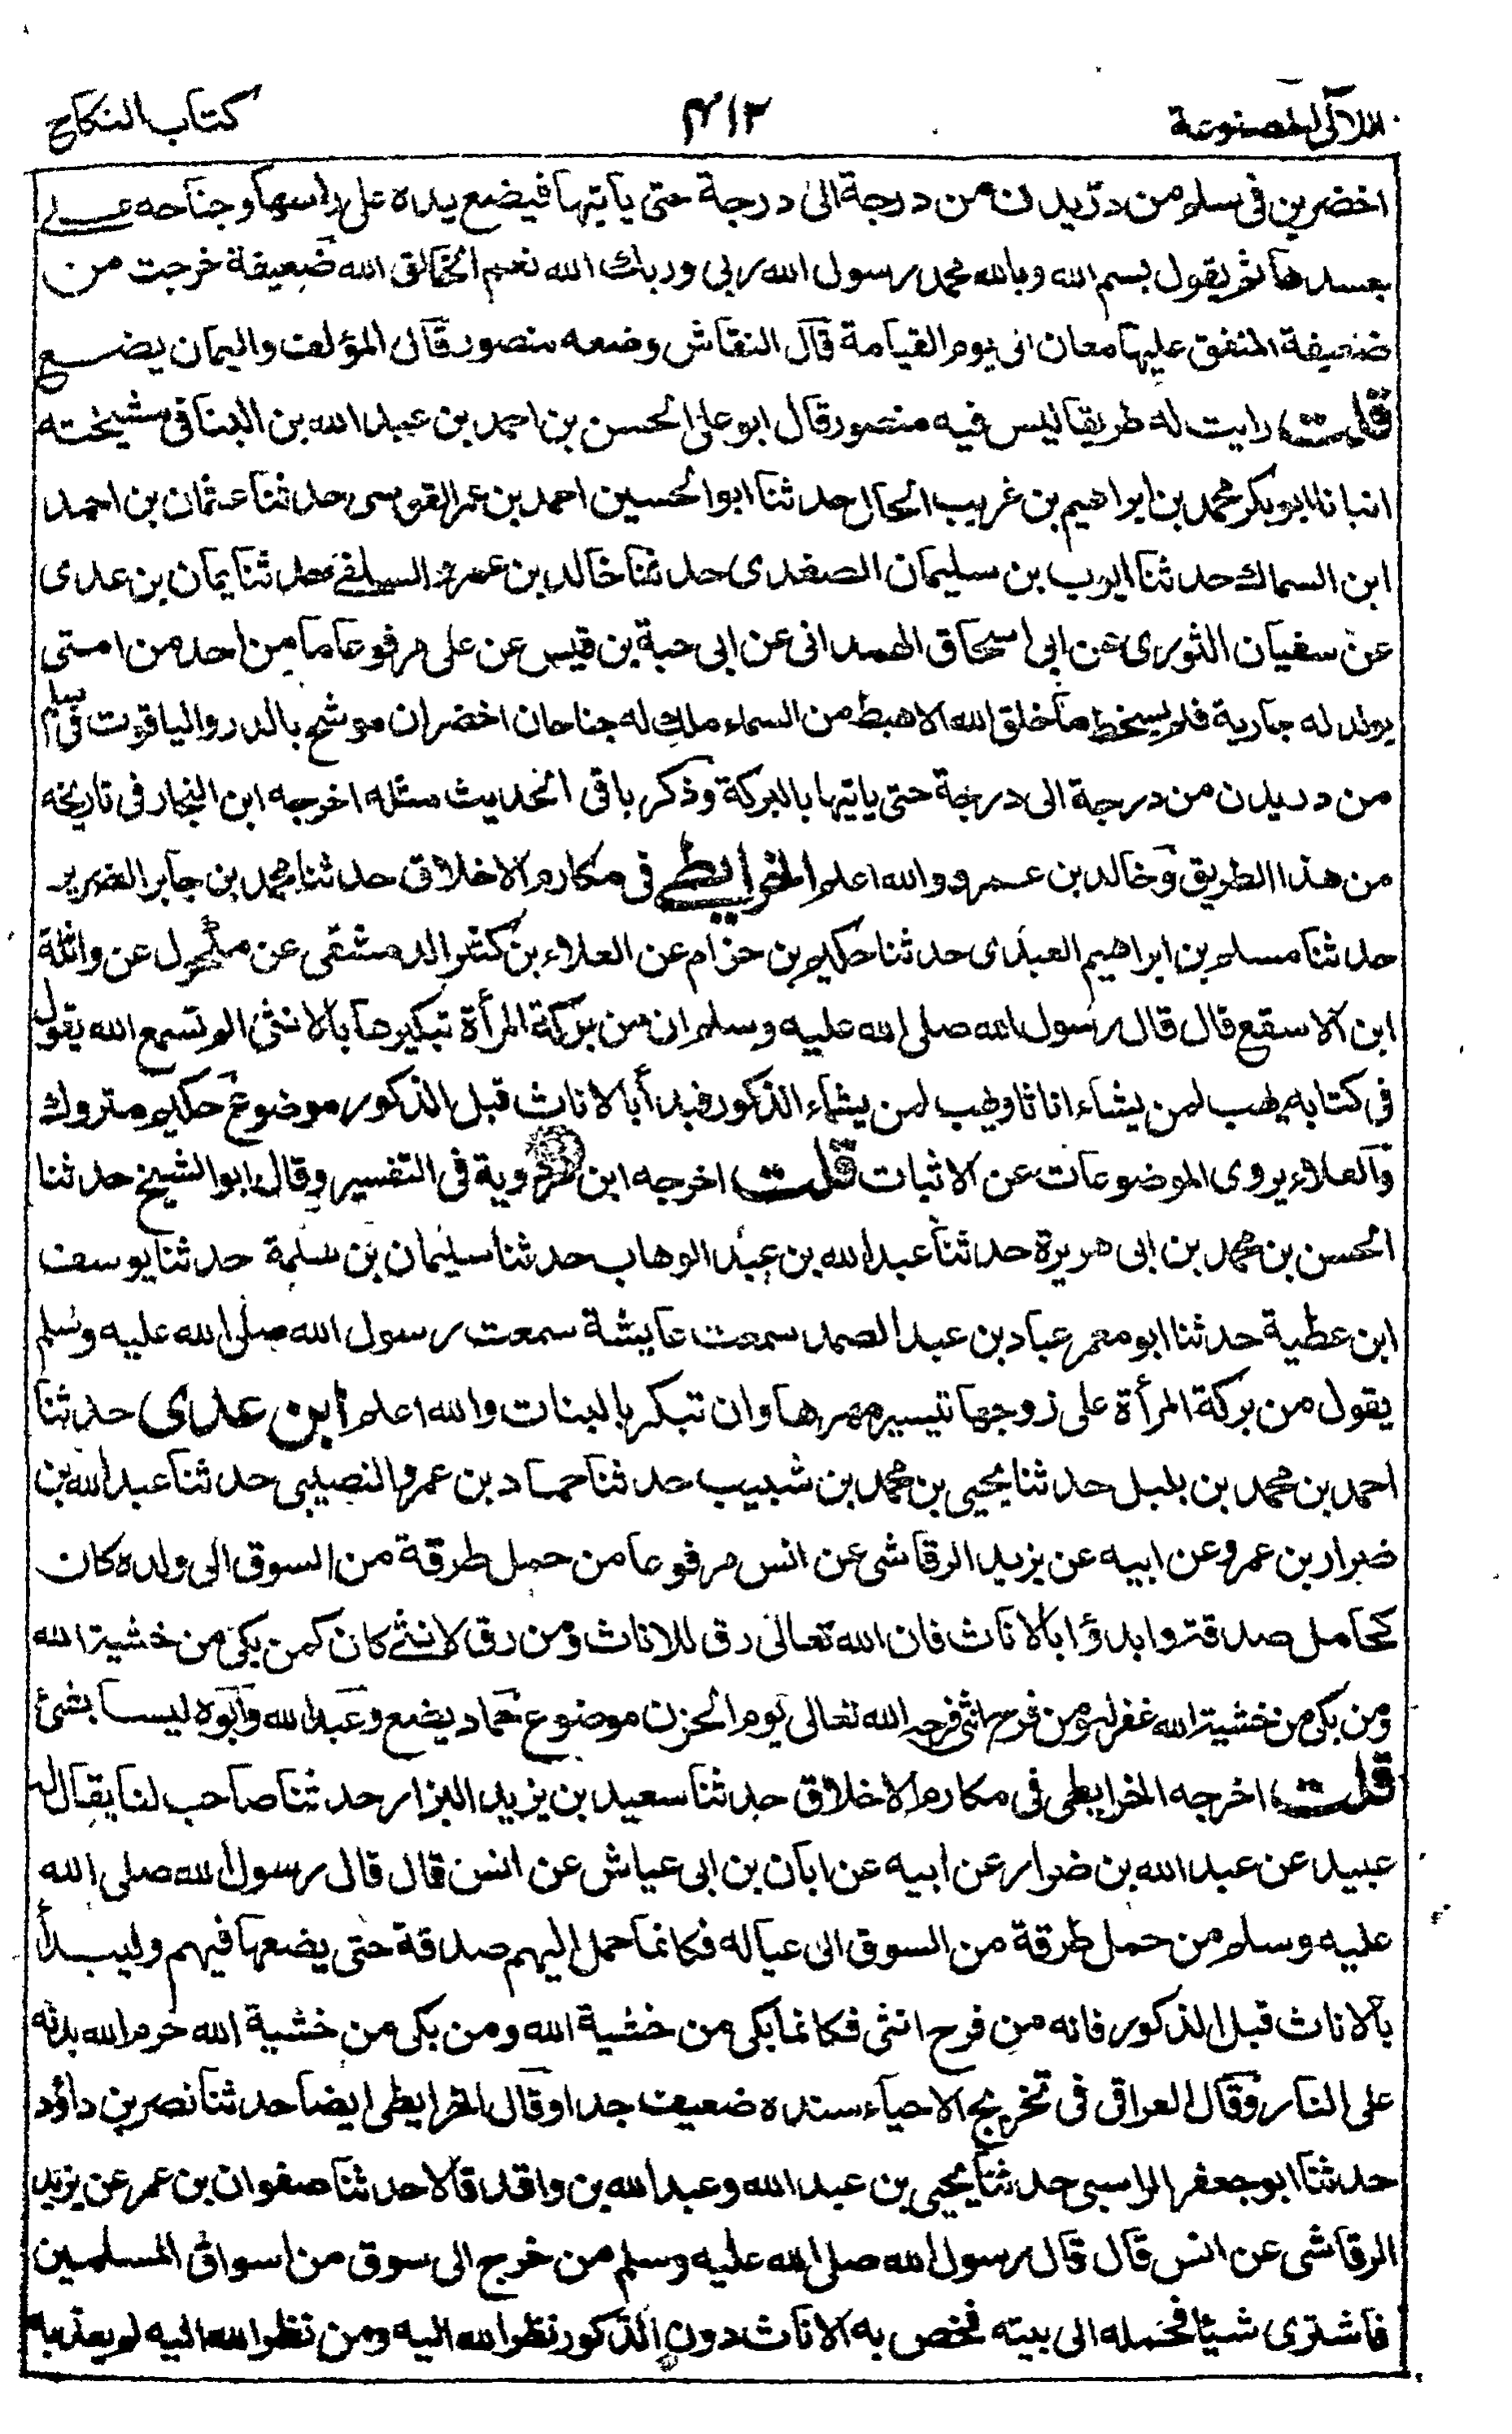 اللآلى المصنوعة ۴۱۳ كتاب النكاح
اخضرين فى سلم من در يدن من درجة الى درجة حتى ياتيها فيضع يده على راسها وجناحه على
جسدها ثم يقول بسم الله وبالله محمد رسول الله ربى وربك الله نعم الخالق الله ضعيفة خرجت من
ضعيفة المنفق عليها معان الى يوم القيامة قال النقاش وضعه منصور قال المؤلف واليمان يضع
قلت رايت له طريقا ليس فيه منصور قال ابو على الحسن بن احمد بن عبد الله بن البنا فى مشيخته
انبانا ابو بكر محمد بن ابراهيم بن غريب الحال حدثنا ابو الحسين احمد بن عمر القوسى حدثنا عثمان بن احمد
ابن السماك حدثنا ايوب بن سليمان الصغدى حدثنا خالد بن عمرو السلفى حدثنا يمان بن عدى
عن سفيان الثورى عن ابى اسحاق الهمدانى عن ابى حبة بن قيس عن على مرفوعا ما من احد من امتى
يولد له جارية فلم يسخط ما خلق الله الا هبط من السماء ملك له جناحان اخضران موشح بالدر والياقوت فى سلم
من در يدن من درجة الى درجة حتى ياتيها بالبركة وذكر باقى الحديث مثله اخرجه ابن النجار فى تاريخه
من هذا الطريق وخالد بن عمرو والله اعلم الخرايطى فى مكارم الاخلاق حدثنا محمد بن جابر الضرير
حدثنا مسلم بن ابراهيم العبدى حدثنا حكيم بن حزام عن العلاء بن كثير الدمشقى عن مكحول عن واثلة
ابن الاسقع قال قال رسول الله صلى الله عليه وسلم ان من بركة المرأة تبكيرها بالانثى الم تسمع الله يقول
فى كتابه يهب لمن يشاء اناثا ويهب لمن يشاء الذكور فبدأ بالاناث قبل الذكور موضوع حكيم متروك
والعلاء يروى الموضوعات عن الاثبات قلت اخرجه ابن مردوية فى التفسير وقال ابو الشيخ حدثنا
الحسن بن محمد بن ابى هريرة حدثنا عبد الله بن عبد الوهاب حدثنا سليمان بن سلمة حدثنا يوسف
ابن عطية حدثنا ابو معمر عباد بن عبد الصمد سمعت عايشة سمعت رسول الله صلى الله عليه وسلم
يقول من بركة المرأة على زوجها تيسير مهرها وان تبكر بالبنات والله اعلم ابن عدى حدثنا
احمد بن محمد بن بلبل حدثنا يحيى بن محمد بن شبيب حدثنا حماد بن عمرو النصيبى حدثنا عبد الله بن
ضرار بن عمرو عن ابيه عن يزيد الرقاشى عن انس مرفوعا من حمل طرقة من السوق الى ولده كان
كحامل صدقة وابدؤا بالاناث فان الله تعالى رق للاناث ومن رق لانثى كان كمن بكى من خشية الله
ومن بكى من خشية الله غفر له ومن فرح انثى فرحه الله تعالى يوم الحزن موضوع حماد يضع وعبد الله وابوه ليسا بشئ
قلت اخرجه الخرايطى فى مكارم الاخلاق حدثنا سعيد بن يزيد البزار حدثنا صاحب لنا يقال له
عبيد عن عبد الله بن ضرار عن ابيه عن ابان بن ابى عياش عن انس قال قال رسول الله صلى الله
عليه وسلم من حمل طرقة من السوق الى عياله فكانما حمل اليهم صدقة حتى يضعها فيهم وليبدأ
بالاناث قبل الذكور فانه من فرح انثى فكانما بكى من خشية الله ومن بكى من خشية الله حرم الله بدنه
على النار وقال العراقى فى تخريج الاحياء سنده ضعيف جدا وقال الخرايطى ايضا حدثنا نصر بن داؤد
حدثنا ابو جعفر الراسبى حدثنا يحيى بن عبد الله وعبد الله بن واقد قالا حدثنا صفوان بن عمر عن يزيد
الرقاشى عن انس قال قال رسول الله صلى الله عليه وسلم من خرج الى سوق من اسواق المسلمين
فاشترى شيئا فحمله الى بيته فخص به الاناث دون الذكور نظر الله اليه ومن نظر الله اليه لم يعذبه